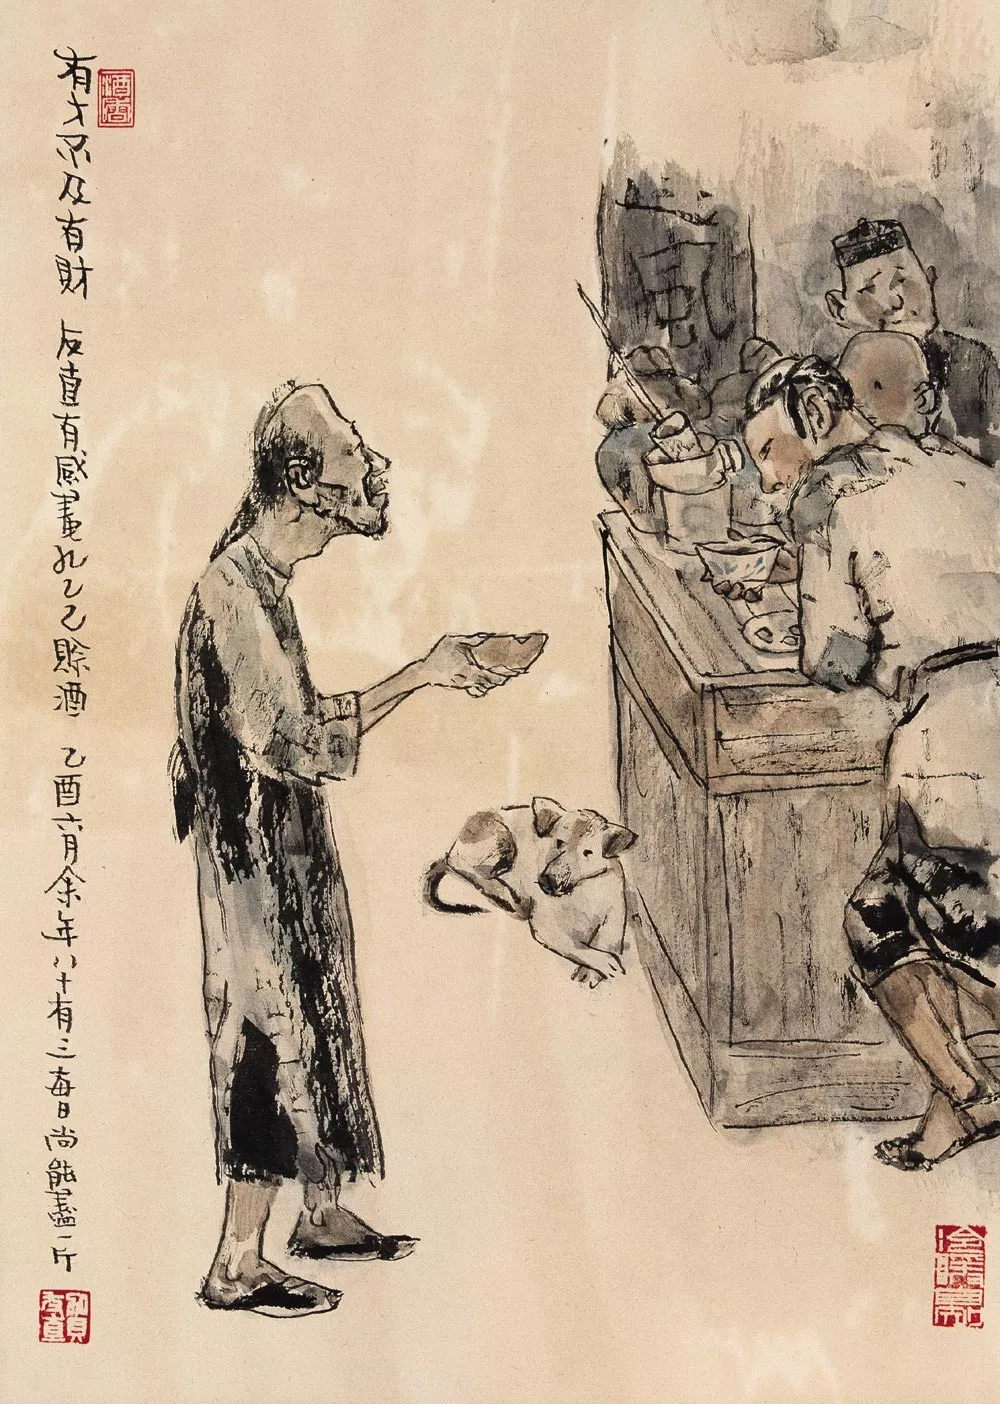 有才不及有財 友直有感畫孔乙己賒酒 乙酉六月余年八十有三每日尚能盡一斤
賀友直
風